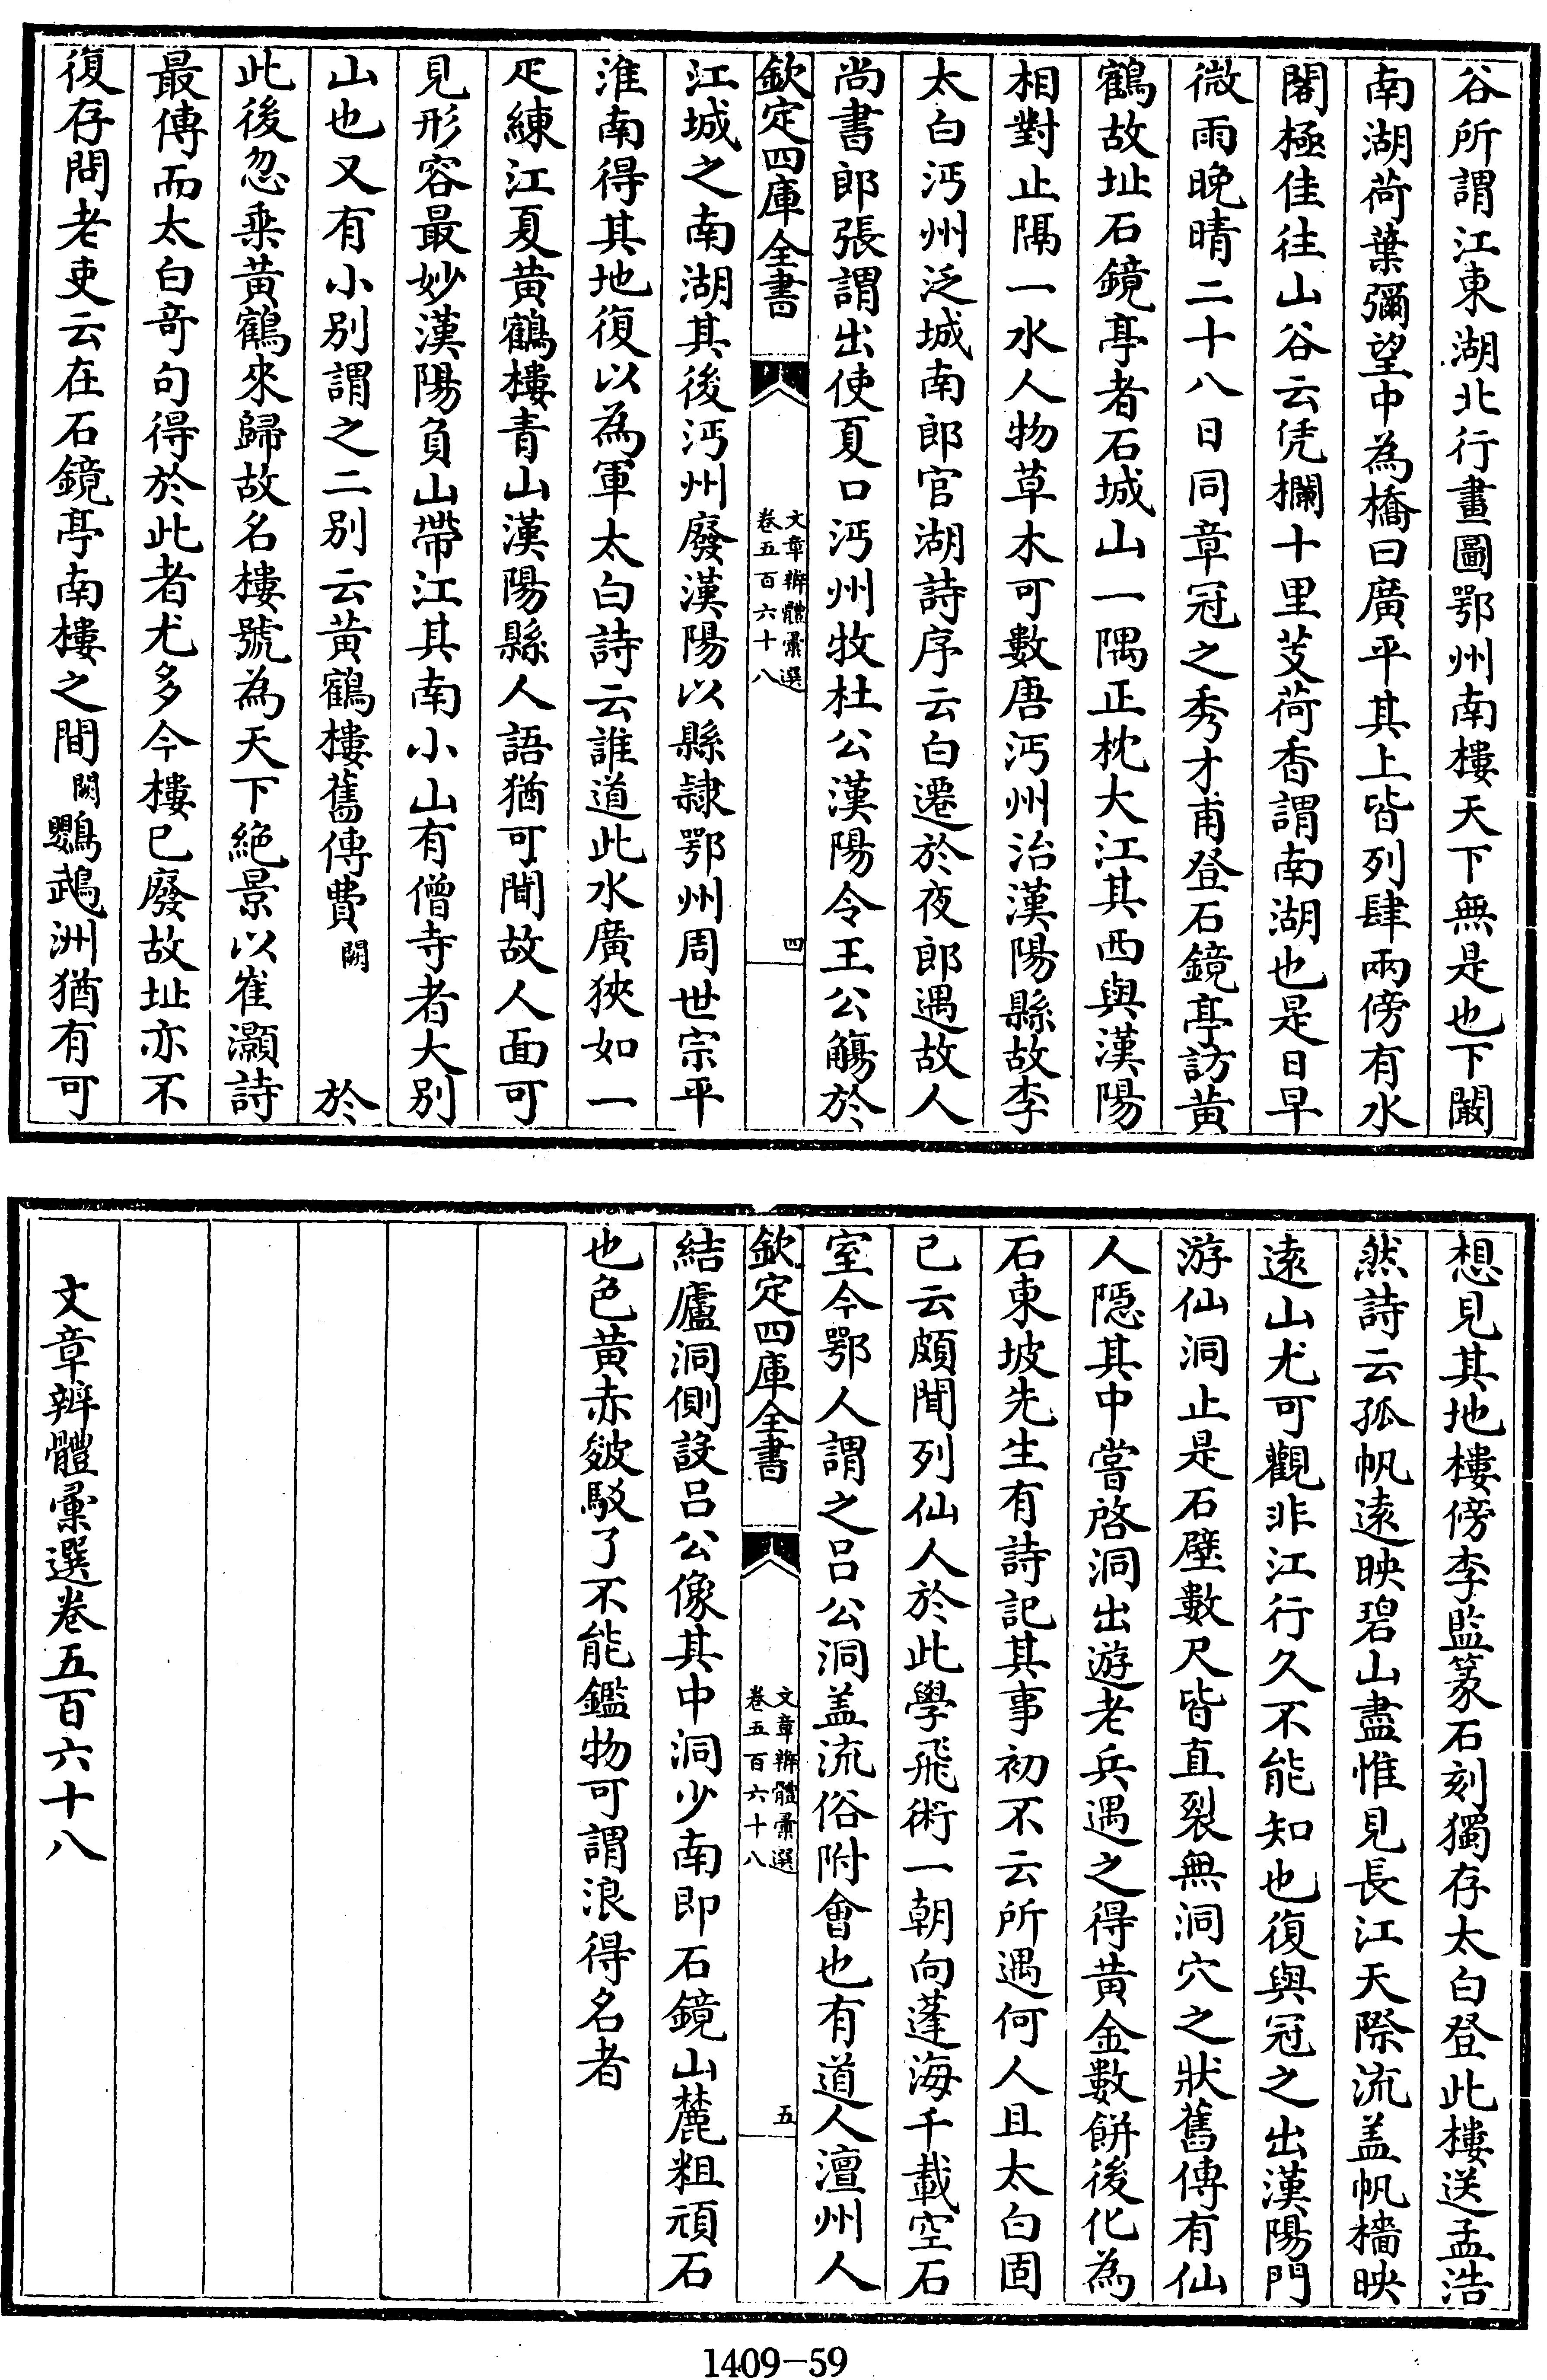 谷所謂江東湖北行畫圖鄂州南樓天下無是也下闞
南湖荷葉彌望中為橋曰廣平其上皆列肆兩傍有水
閣極佳往山谷云凭欄十里芰荷香謂南湖也是日早
微雨晚晴二十八日同章冠之秀才甫登石鏡亭訪黄
鶴故址石鏡亭者石城山一隅正枕大江其西與漢陽
相對止隔一水人物草木可數唐沔州治漢陽縣故李
太白沔州泛城南郎官湖詩序云白遷於夜郎遇故人
尚書郎張謂出使夏口沔州牧杜公漢陽令王公觴於
欽定四庫全書
文章辨體彙選
卷五百六十八
四
江城之南湖其後沔州廢漢陽以縣隷鄂州周世宗平
淮南得其地復以為軍太白詩云誰道此水廣狹如一
疋練江夏黄鶴樓青山漢陽縣人語猶可聞故人面可
見形容最妙漢陽負山帶江其南小山有僧寺者大别
山也又有小别謂之二别云黄鶴樓舊傳費闕於
此後忽乘黄鶴來歸故名樓號為天下絶景以崔灝詩
最傳而太白竒句得於此者尤多今樓已廢故址亦不
復存問老吏云在石鏡亭南樓之間闕鸚鵡洲猶有可
想見其地樓傍李監篆石刻獨存太白登此樓送孟浩
然詩云孤帆遠映碧山盡惟見長江天際流盖帆檣映
遠山尤可觀非江行久不能知也復與冠之出漢陽門
游仙洞止是石壁數尺皆直裂無洞穴之狀舊傳有仙
人隠其中嘗啓洞出遊老兵遇之得黄金數餅後化為
石東坡先生有詩記其事初不云所遇何人且太白固
已云頗聞列仙人於此學飛術一朝向蓬海千載空石
室今鄂人謂之吕公洞盖流俗附會也有道人澶州人
欽定四庫全書
文章辨體彙選
卷五百六十八
五
結廬洞側設吕公像其中洞少南即石鏡山麓粗頑石
也色黄赤皴駁了不能鑑物可謂浪得名者
文章辨體彙選卷五百六十八
1409-59